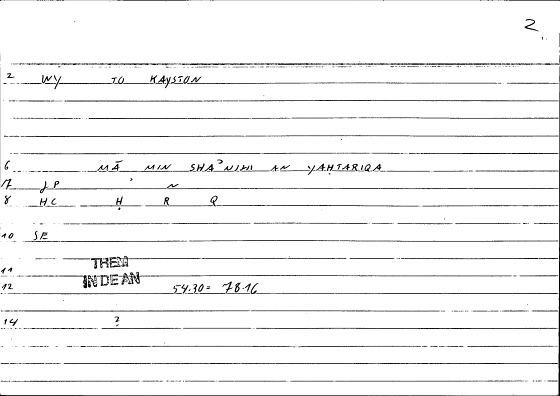 2
2 WY TO KAYSTON
6 MĀ MIN SHAʾNIHI AN YAḤTARIQA
7 JP ʾ ~
8 HC Ḥ R Q
10 SE
11 THEM
12 INDEAN 54.30= 78.16
14 ?